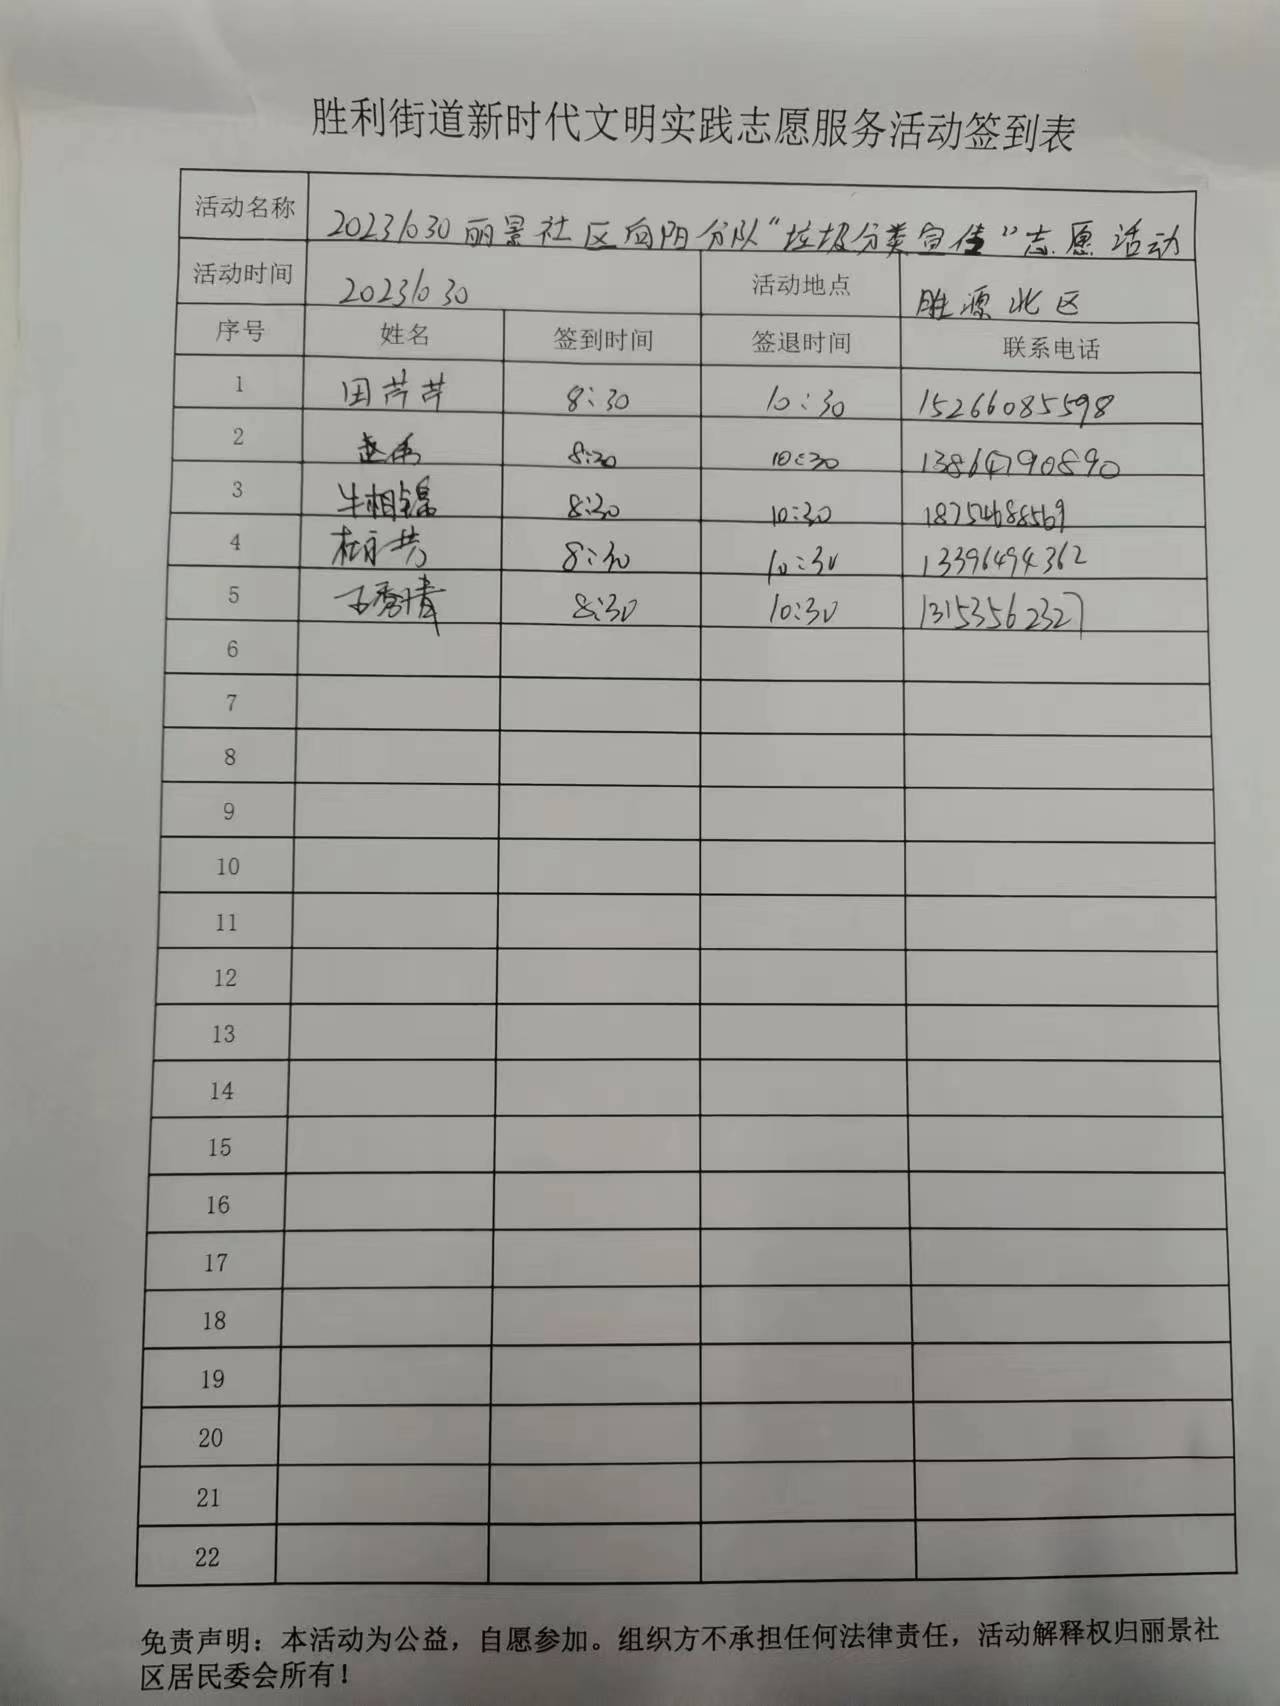 胜利街道新时代文明实践志愿服务活动签到表
活动名称 20231030丽景社区向阳分队“垃圾分类宣传”志愿活动
活动时间 20231030 活动地点 胜源北区
序号 姓名 签到时间 签退时间 联系电话
1 田芹芹 8:30 10:30 15266085598
2 8:30 10:30 13864790890
3 牛相锦 8:30 10:30 18754688569
4 8:30 10:30 13396494362
5 8:30 10:30 13153562327
6
7
8
9
10
11
12
13
14
15
16
17
18
19
20
21
22
免责声明：本活动为公益，自愿参加。组织方不承担任何法律责任，活动解释权归丽景社
区居民委会所有！